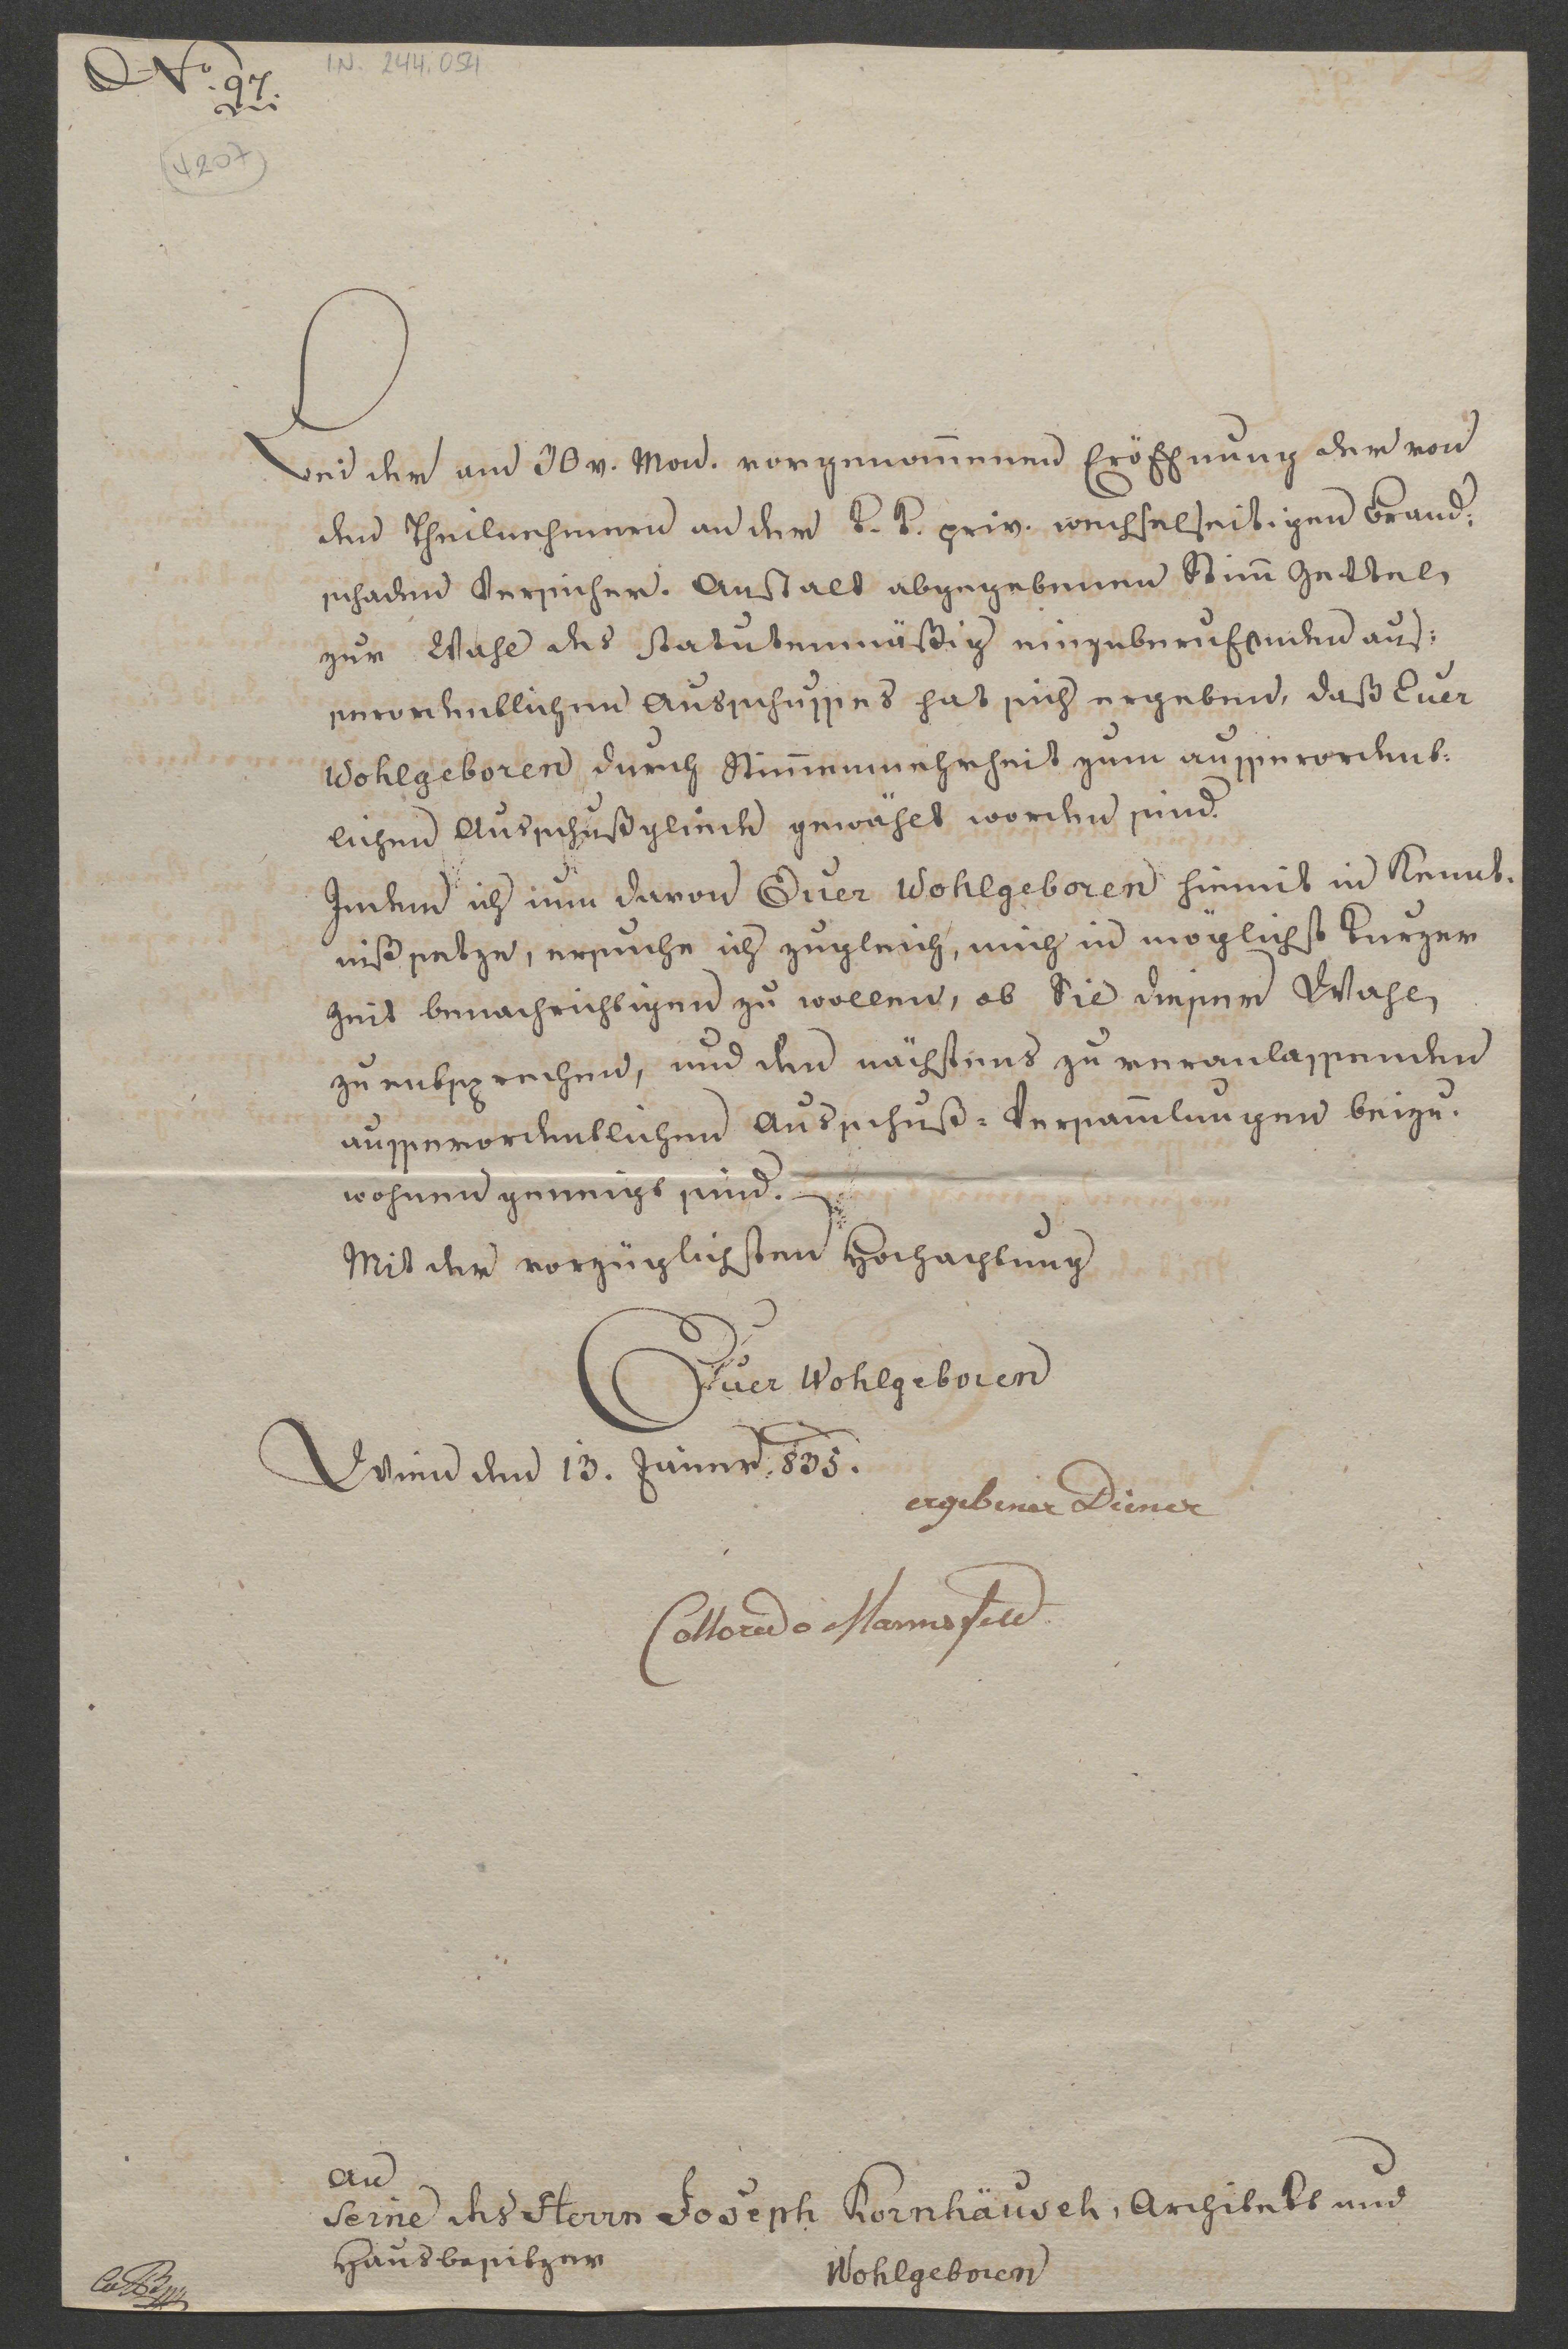 No. 97.
I.N. 244.054
4207
Bei der am 30 v. Mon. vorgenom̅enen Eröffnung der von
den Theilnehmern an der k. k. priv. wechselseitigen Brand:
schaden Versicher. Anstalt abgegebenen Stim̅ Zettel,
zur Wahl des statutenmäßig einzuberufenden aus:
serordentlichen Ausschusses hat sich ergeben, daß Euer
Wohlgeboren durch Stim̅enmehrheit zum ausserordent:
lichen Ausschußgliede gewählt worden sind.
Indem ich nun davon Euer Wohlgeboren hiemit in Kennt:
niß setze, ersuche ich zugleich, mich in möglichst kurzer
Zeit benachrichtigen zu wollen, ob Sie dieser Wahl,
zu entsprechen, und den nächstens zu veranlassenden
ausserordentlichen Ausschuß=Versam̅lungen beizu:
wohnen geneigt sind.
Mit der vorzüglichsten Hochachtung
Euer Wohlgeboren
Wien den 13. Jäner 835.
ergebener Diener
Colloredo Mannsfeld
An
Seine des Herrn Joseph Kornhäusel, Architekt und
Hausbesitzer
Wohlgeboren